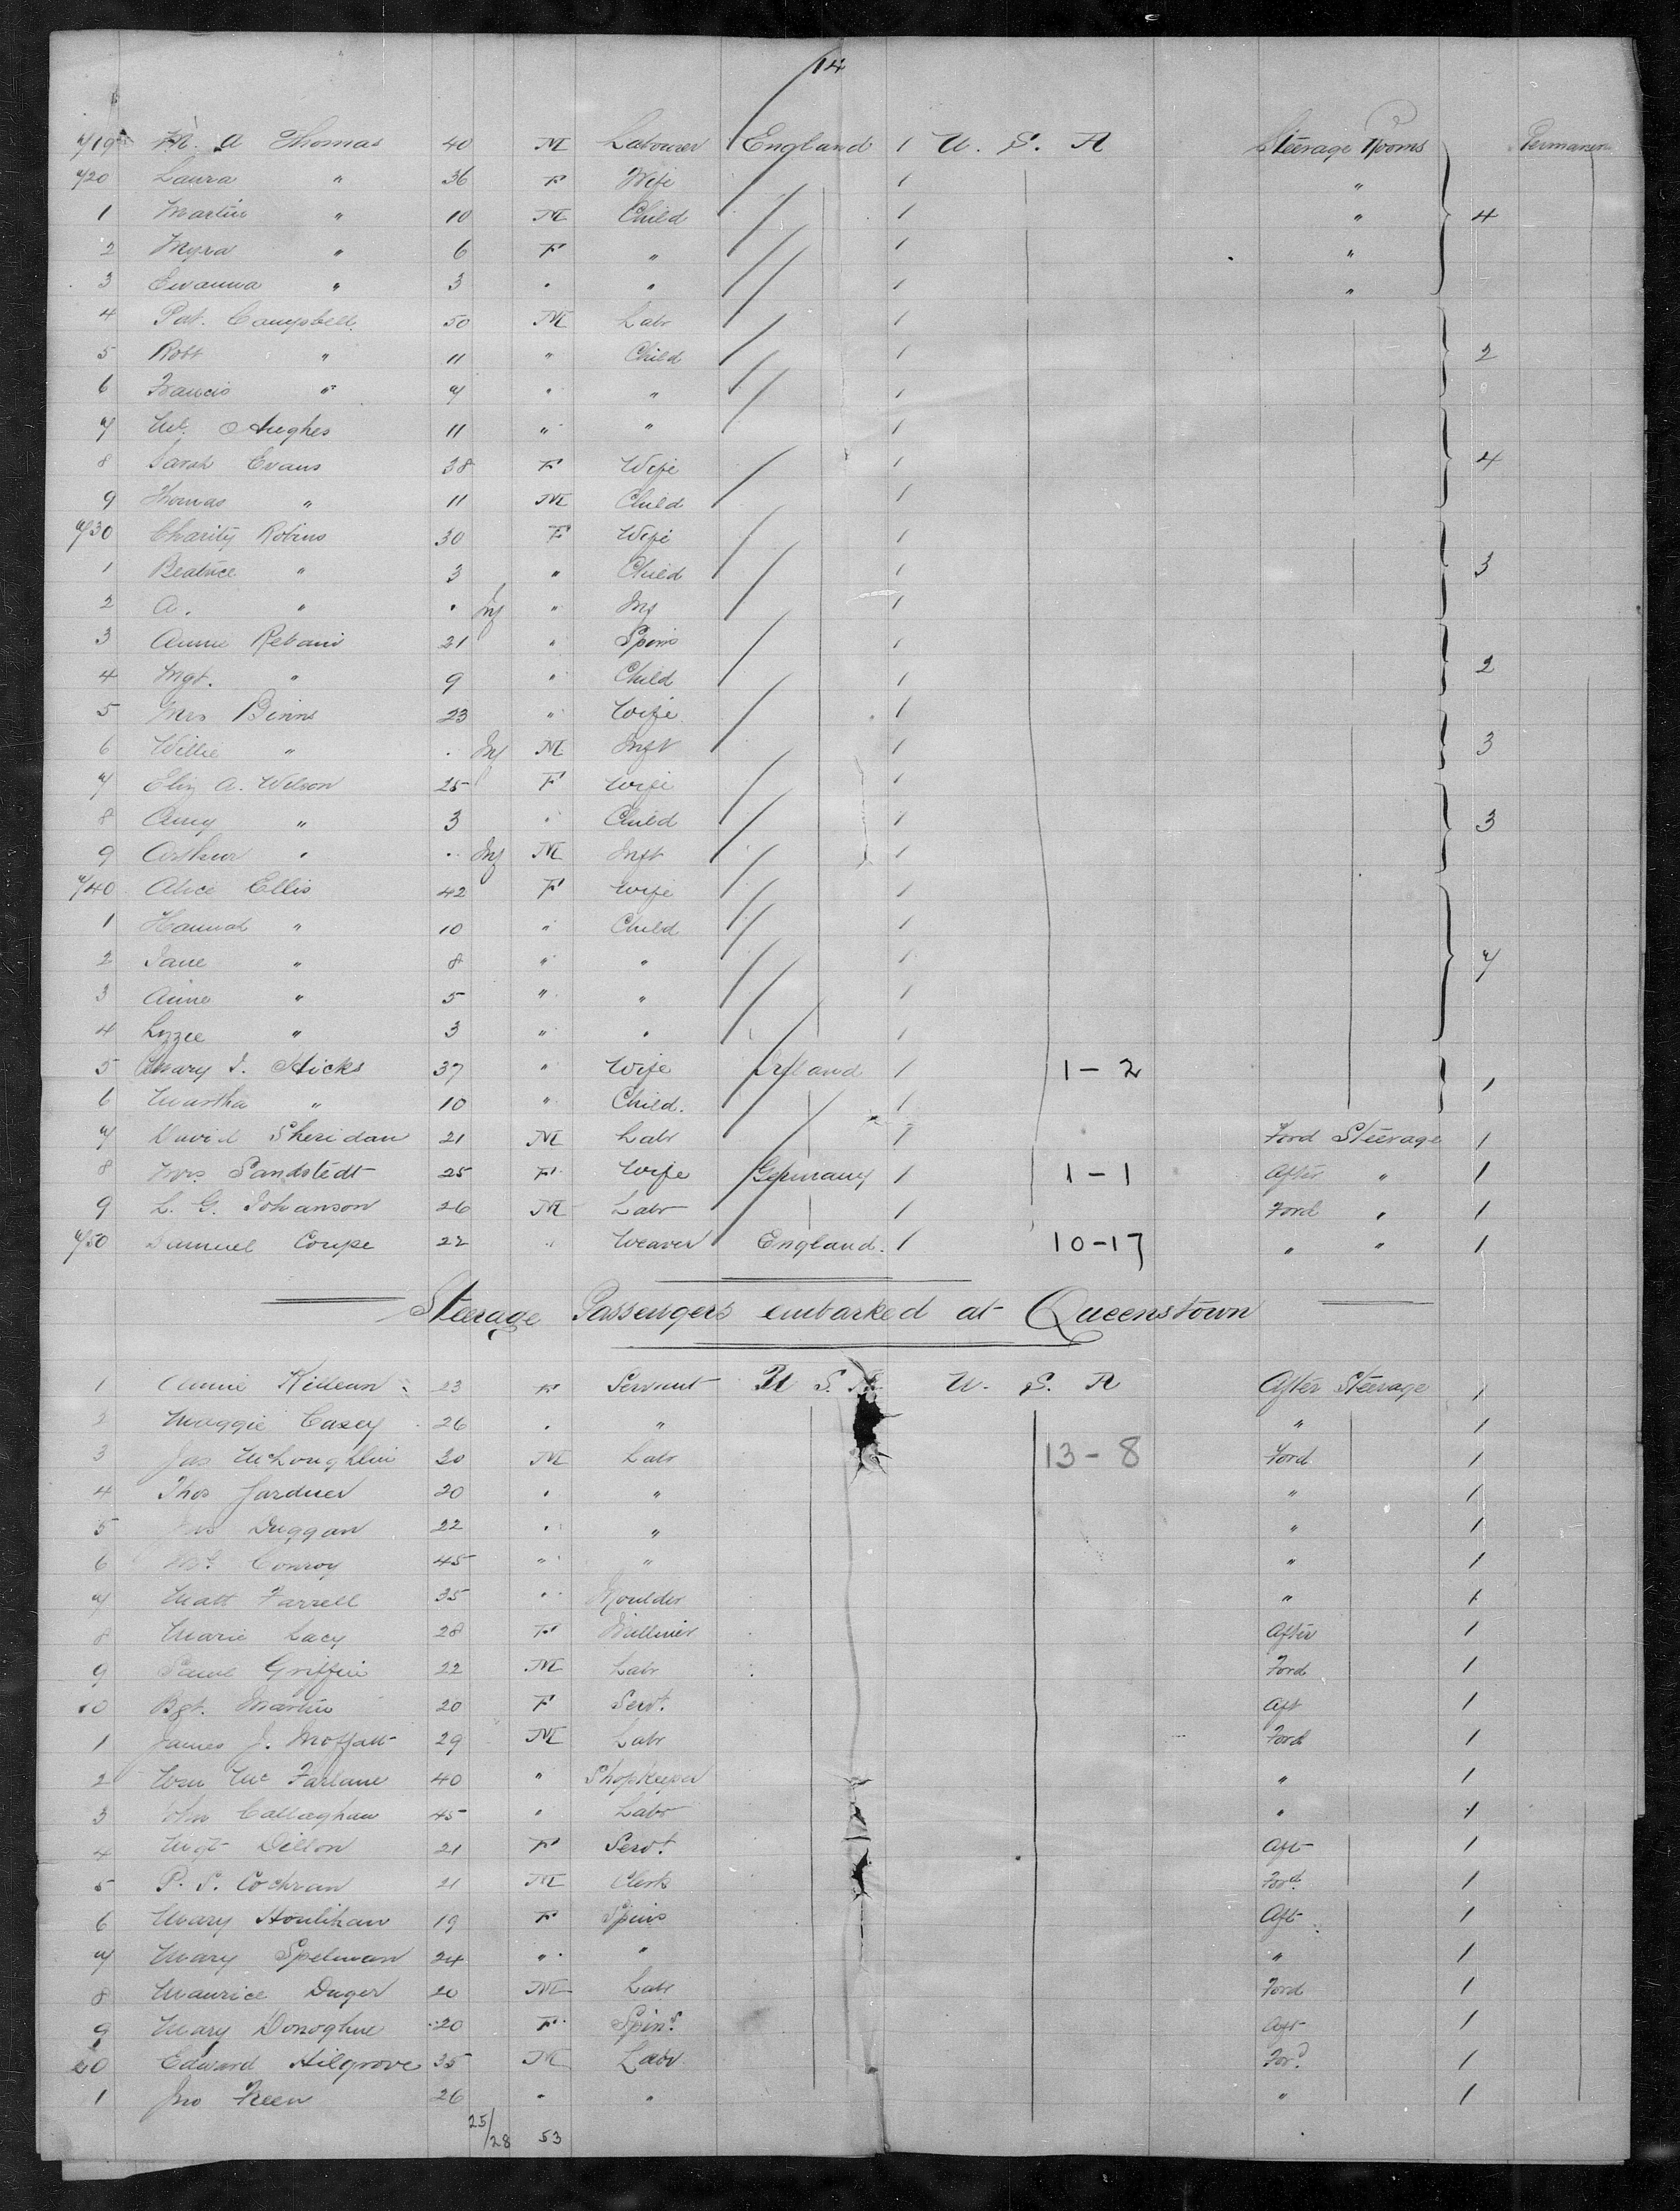 14
719 M. A Thomas 40 M Labourer England 1 U. S. A Steerage Rooms Permanent
720 Laura " 36 F Wife 1 "
1 Martin " 10 M Child 1 " 4
2 Myra " 6 F " 1 "
3 " 3 " " 1 "
4 Pat. Campbell 50 M Labr 1
5 Robt " 11 " Child 1 2
6 Francis " 7 " " 1
7 Hughes 11 " " 1
8 Sarah Evans 38 F Wife 1 4
9 Thomas " 11 M Child 1
730 Charity Robins 30 F Wife 1
1 Beatrice " 3 " Child 1 3
2 A. " Inf " Inf 1
3 Annie 21 " Spins 1
4 Mgt. " 9 " Child 1 2
5 Mrs Binns 23 " Wife 1
6 Willie " Inf M Inft 1 3
7 Eliz A. Wilson 25 F Wife 1
8 Amy " 3 " Child 1 3
9 Arthur " Inf M Inft 1
740 Alice Ellis 42 F Wife 1
1 Hannah " 10 " Child 1
2 Jane " 8 " " 1 7
3 Anne " 5 " " 1
4 Lizzie " 3 " " 1
5 Mary J. Hicks 37 " Wife Ireland 1 1-2 1
6 Martha " 10 " Child. 1
7 David Sheridan 21 M Labr 1 Ford Steerage 1
8 Mrs Sandstedt 25 F Wife Germany 1 1-1 After " 1
9 L. G. Johanson 26 M Labr 1 Ford " 1
750 Samuel Coupe 22 " Weaver England. 1 10-17 " " 1
Steerage Passengers embarked at Queenstown
1 Annie Killean 23 F Servant U S A U. S. A After Steerage 1
2 Maggie Casey 26 " " " 1
3 Jas McLoughlin 20 M Labr 13-8 Ford 1
4 Thos Gardner 20 " " " 1
5 Duggan 22 " " " 1
6 Conroy 45 " " " 1
7 Matt Farrell 35 " Moulder " 1
8 Marie Lacy 28 F Milliner After 1
9 Griffin 22 M Labr Ford 1
10 Bgt. Martin 20 F Servt. Aft 1
1 James J. Moffatt 29 M Labr Ford 1
2 Wm Mc Farlane 40 " Shopkeeper " 1
3 John Callaghan 45 " Labr " 1
4 Mgt Dillon 21 F Servt. Aft 1
5 P. S. Cochran 21 M Clerk Ford. 1
6 Mary Houlihan 19 F Spins Aft 1
7 Mary Spelman 24 " " " 1
8 Maurice Duger 20 M Labr Ford 1
9 Mary Donoghue 20 F Spins. Aft 1
20 Edward Hilgrove 35 M Labr Ford. 1
1 Jno Freen 26 " " " 1
25/28 53